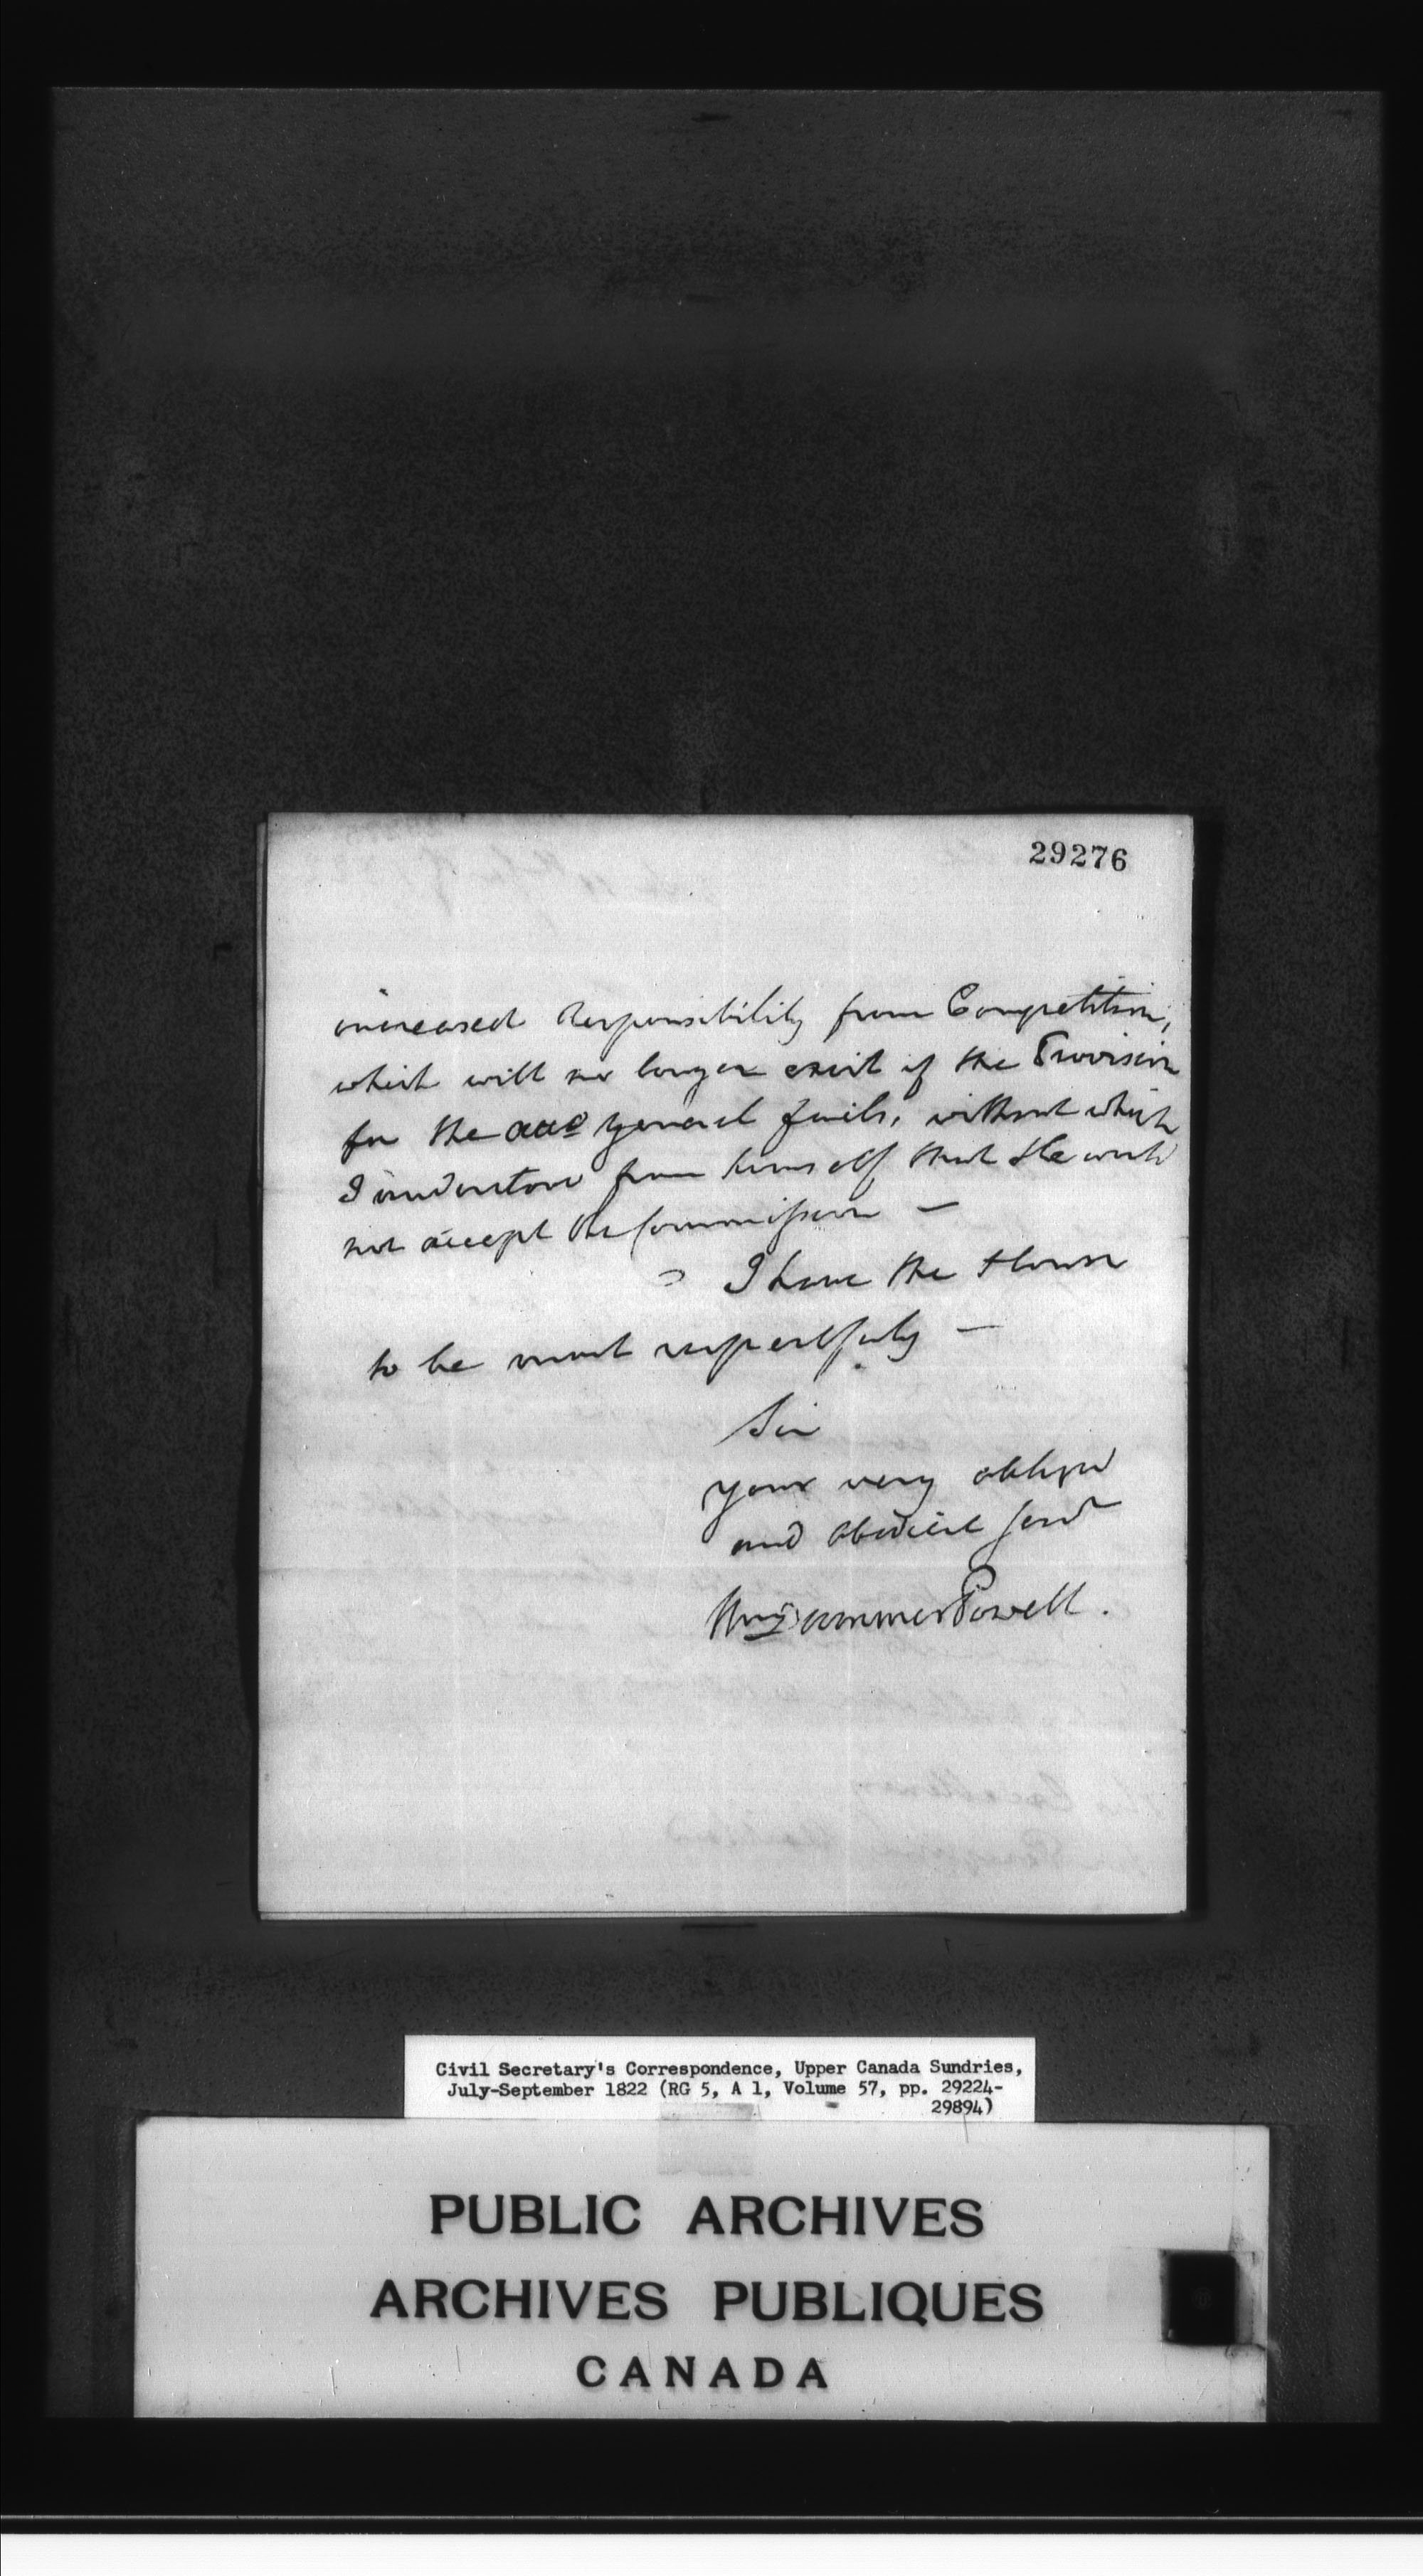 29276
increased Responsibility from Competition,
which will no longer exist if the Provision
for the general fails, without which
I understand from himself that He would
not accept the Commission —
I have the Honor
to be most respectfuly —
Sir
your very obliged
and obedient Servt
Wm Dummer Powell.
Civil Secretary's Correspondence, Upper Canada Sundries,
July-September 1822 (RG 5, A 1, Volume 57, pp. 29224-
29894)
PUBLIC ARCHIVES
ARCHIVES PUBLIQUES
CANADA